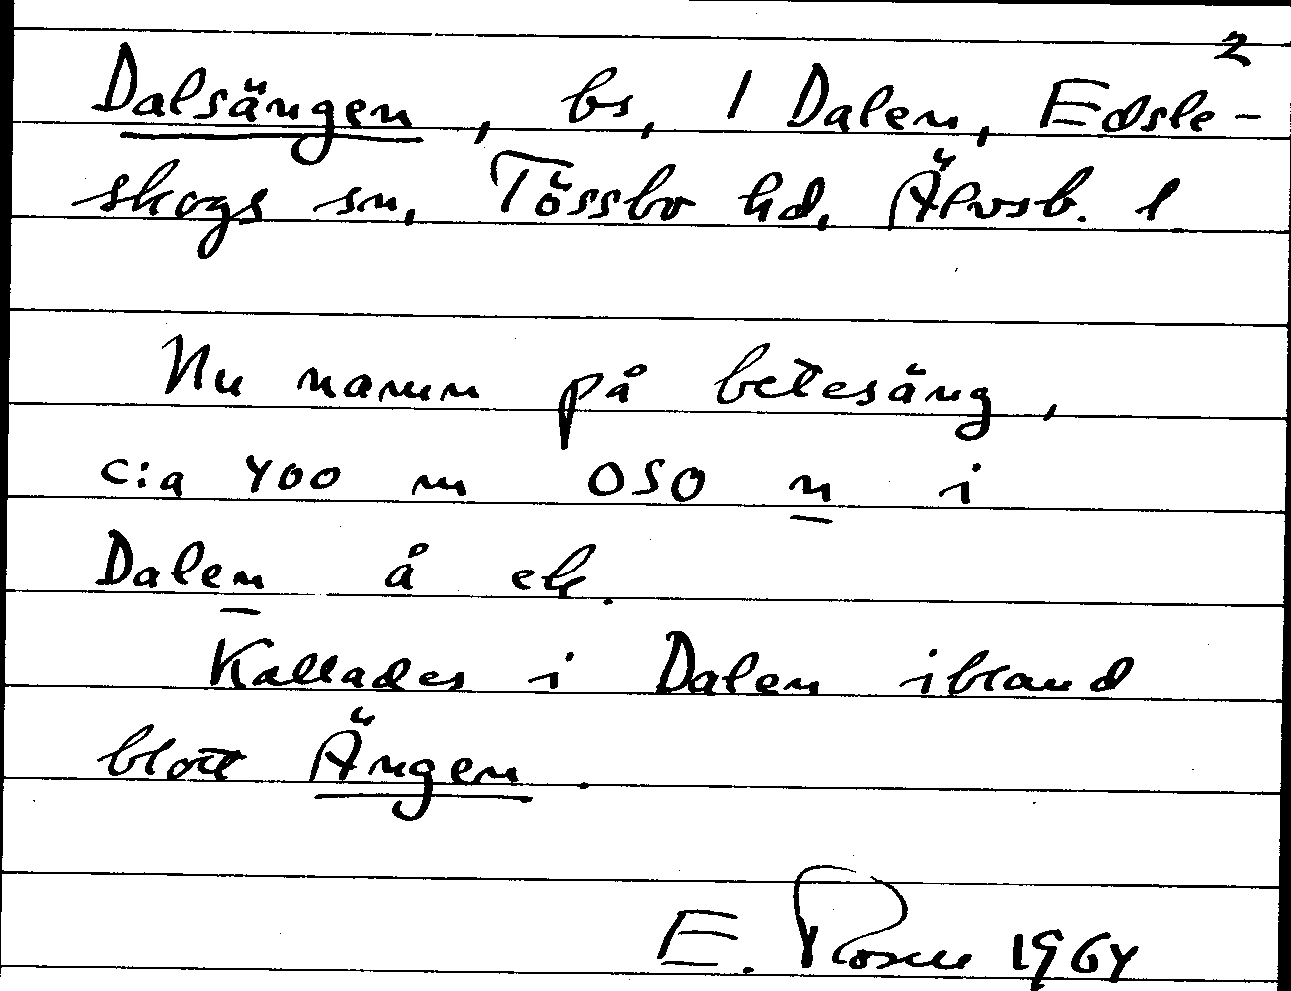 2
Dalsängen, bs, 1 Dalen, Edsle-
skogs sn, Tössbo hd, Älvsb. l.
Nu namn på betesäng,
c:a 400 m OSO n i
Dalen å ek.
Kallades i Dalen ibland
blott Ängen.
E. Rosen 1964